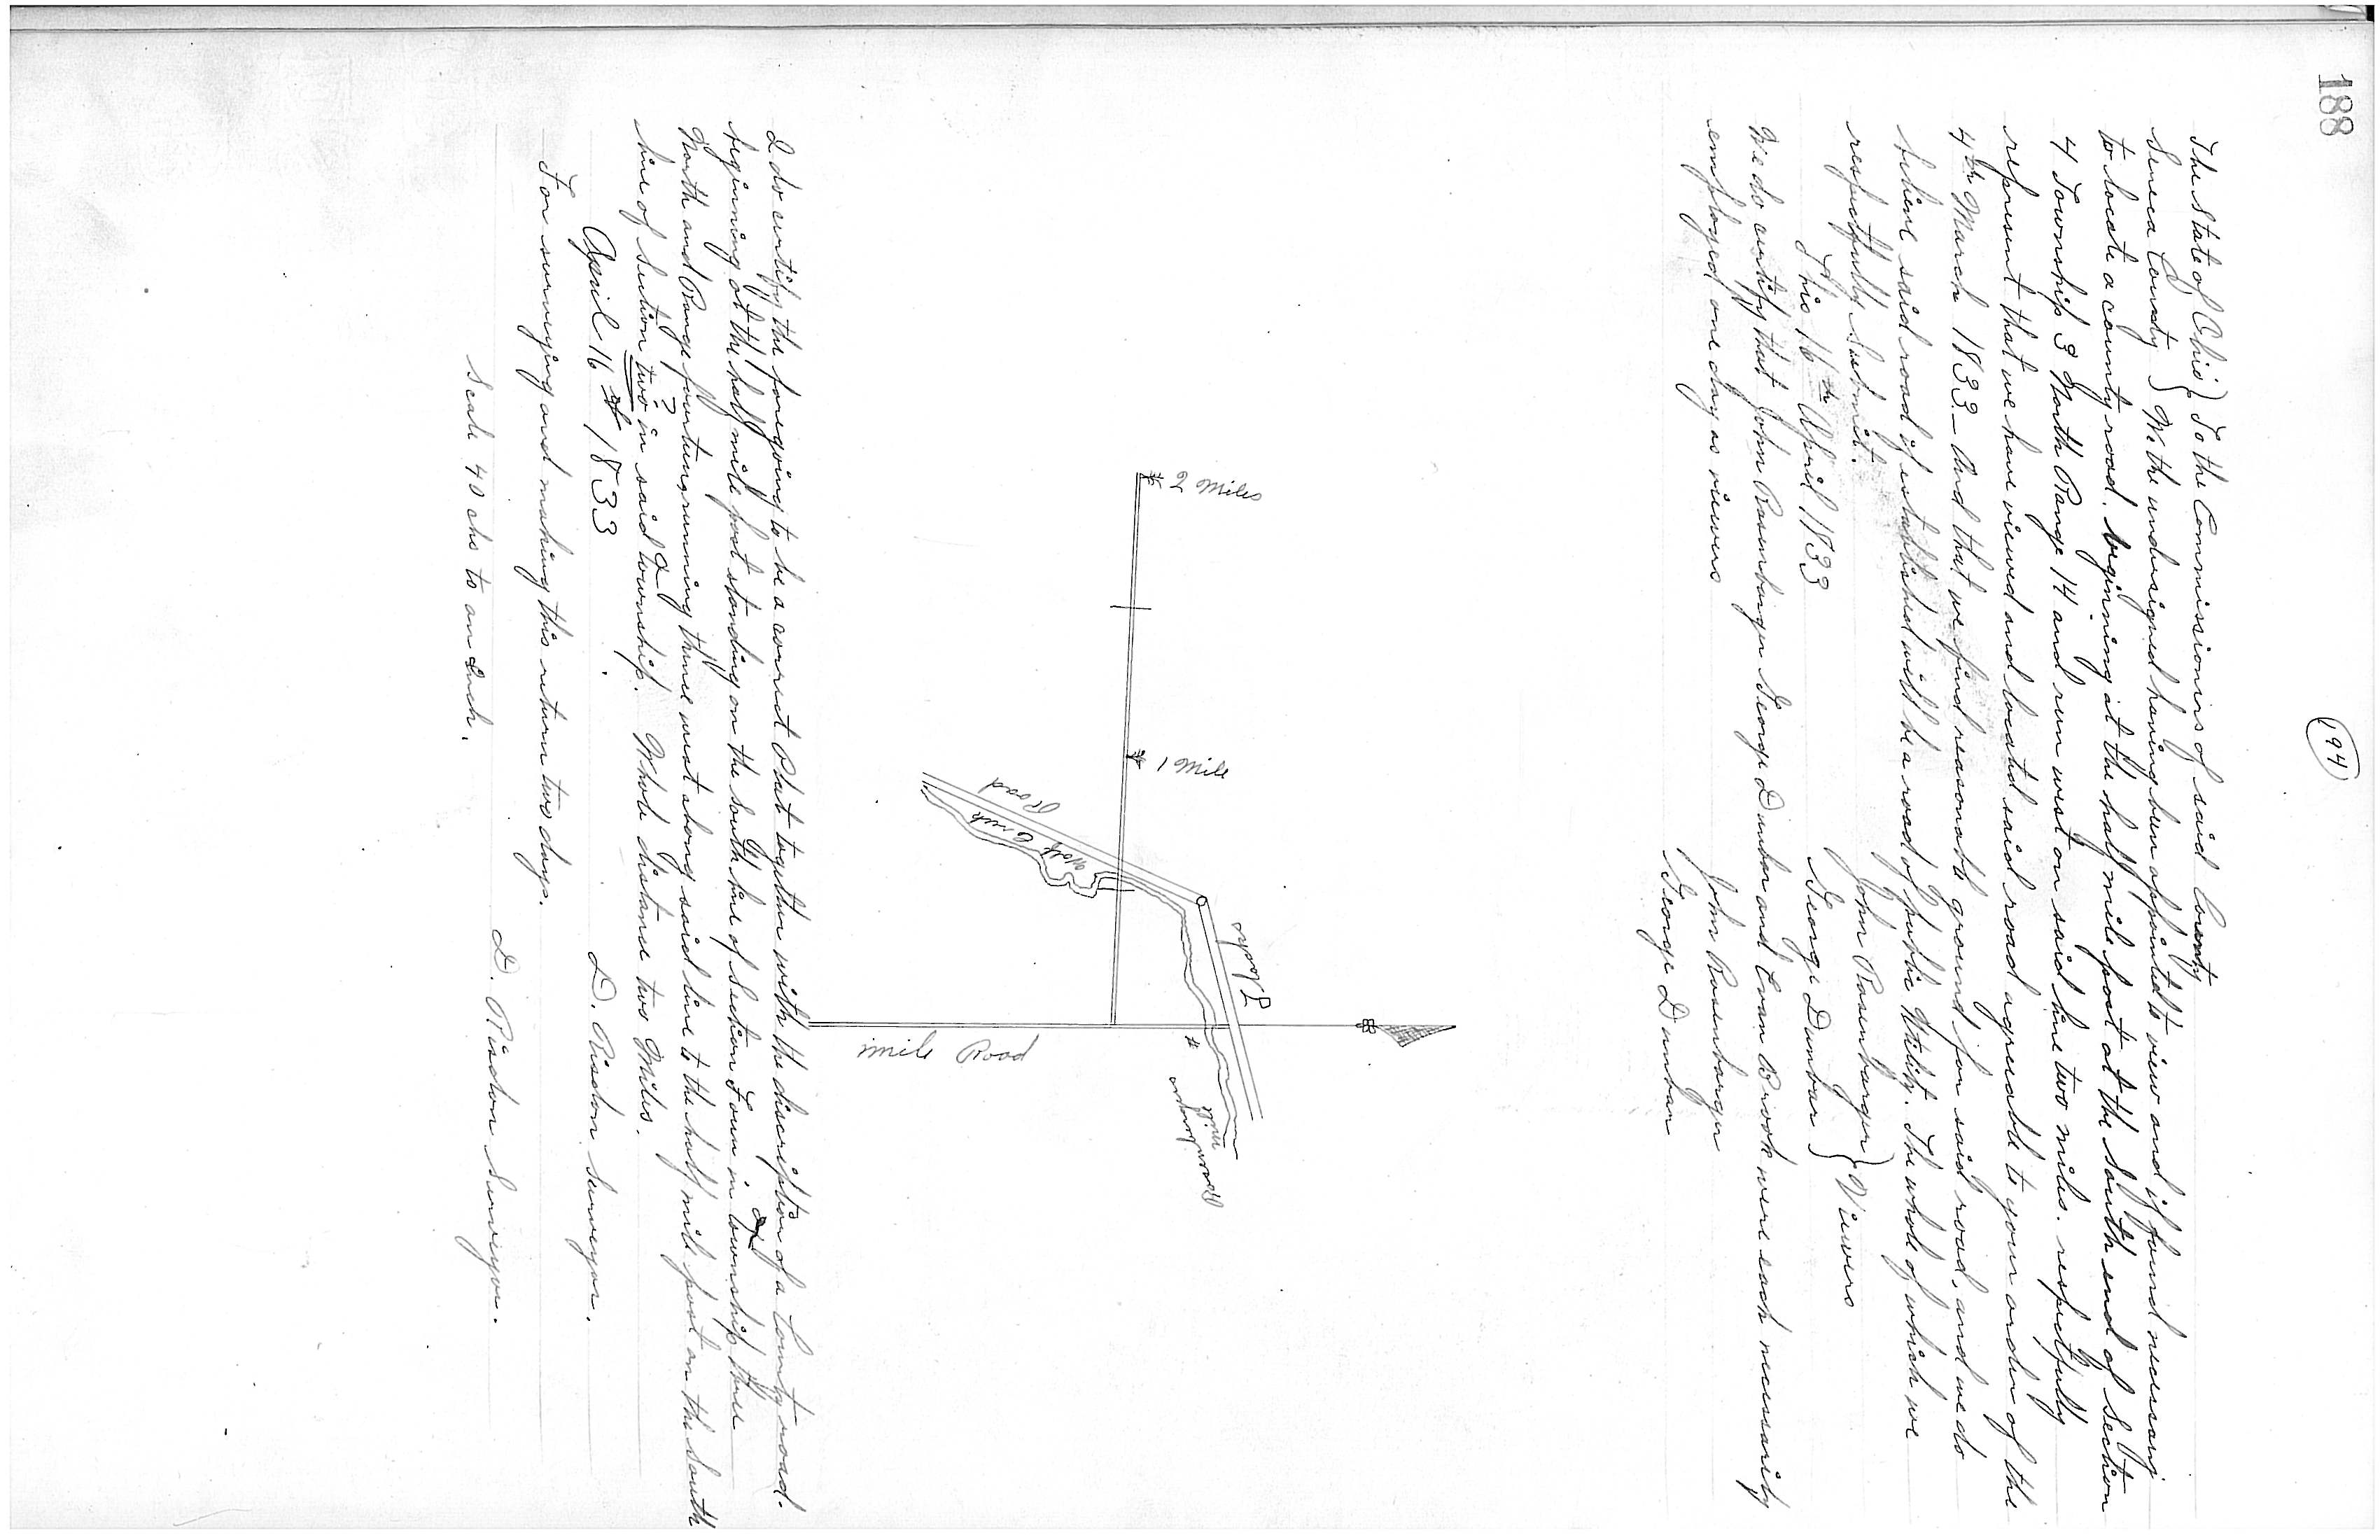 188
194
The State of Ohio } To the Commissioners of said County
Seneca County } We the undersigned having been appointed to view and if found necessary
to locate a county road. beginning at the half mile post at the South end of Section
4 Township 3 North Range 14 and run west on said line two miles. respectfully
represent that we have viewed and located said road agreeable to your order of the
4th March 1833 – And that we find reasonable ground for said road, and we do
believe said road if established will be a road of public Utility. The whole of which we
respectfully Submit.
This 16th April 1833
John Rosenbarger }
George Dumbar } Viewers
We do certify that John Rosenbarger George Dumbar and Evan Brook were each necessarily
employed one day as viewers
John Rosenbarger
George Dumbar
2 Miles
1 Mile
Road
Wolf Creek
mile Road
mill
I do certify the foregoing to be a correct Plat together with the discription of a County road.
beginning at the half mile post standing on the South line of Section Four in township three
North and Range fourteen, running thence west along said line to the half mile post on the South
line of Section two ? in said township. Whole distance two Miles.
April 16th 1833
D. Risdon Surveyor.
For surveying and making this return two days.
D. Risdon Surveyor.
Scale 40 chs to an Inch.